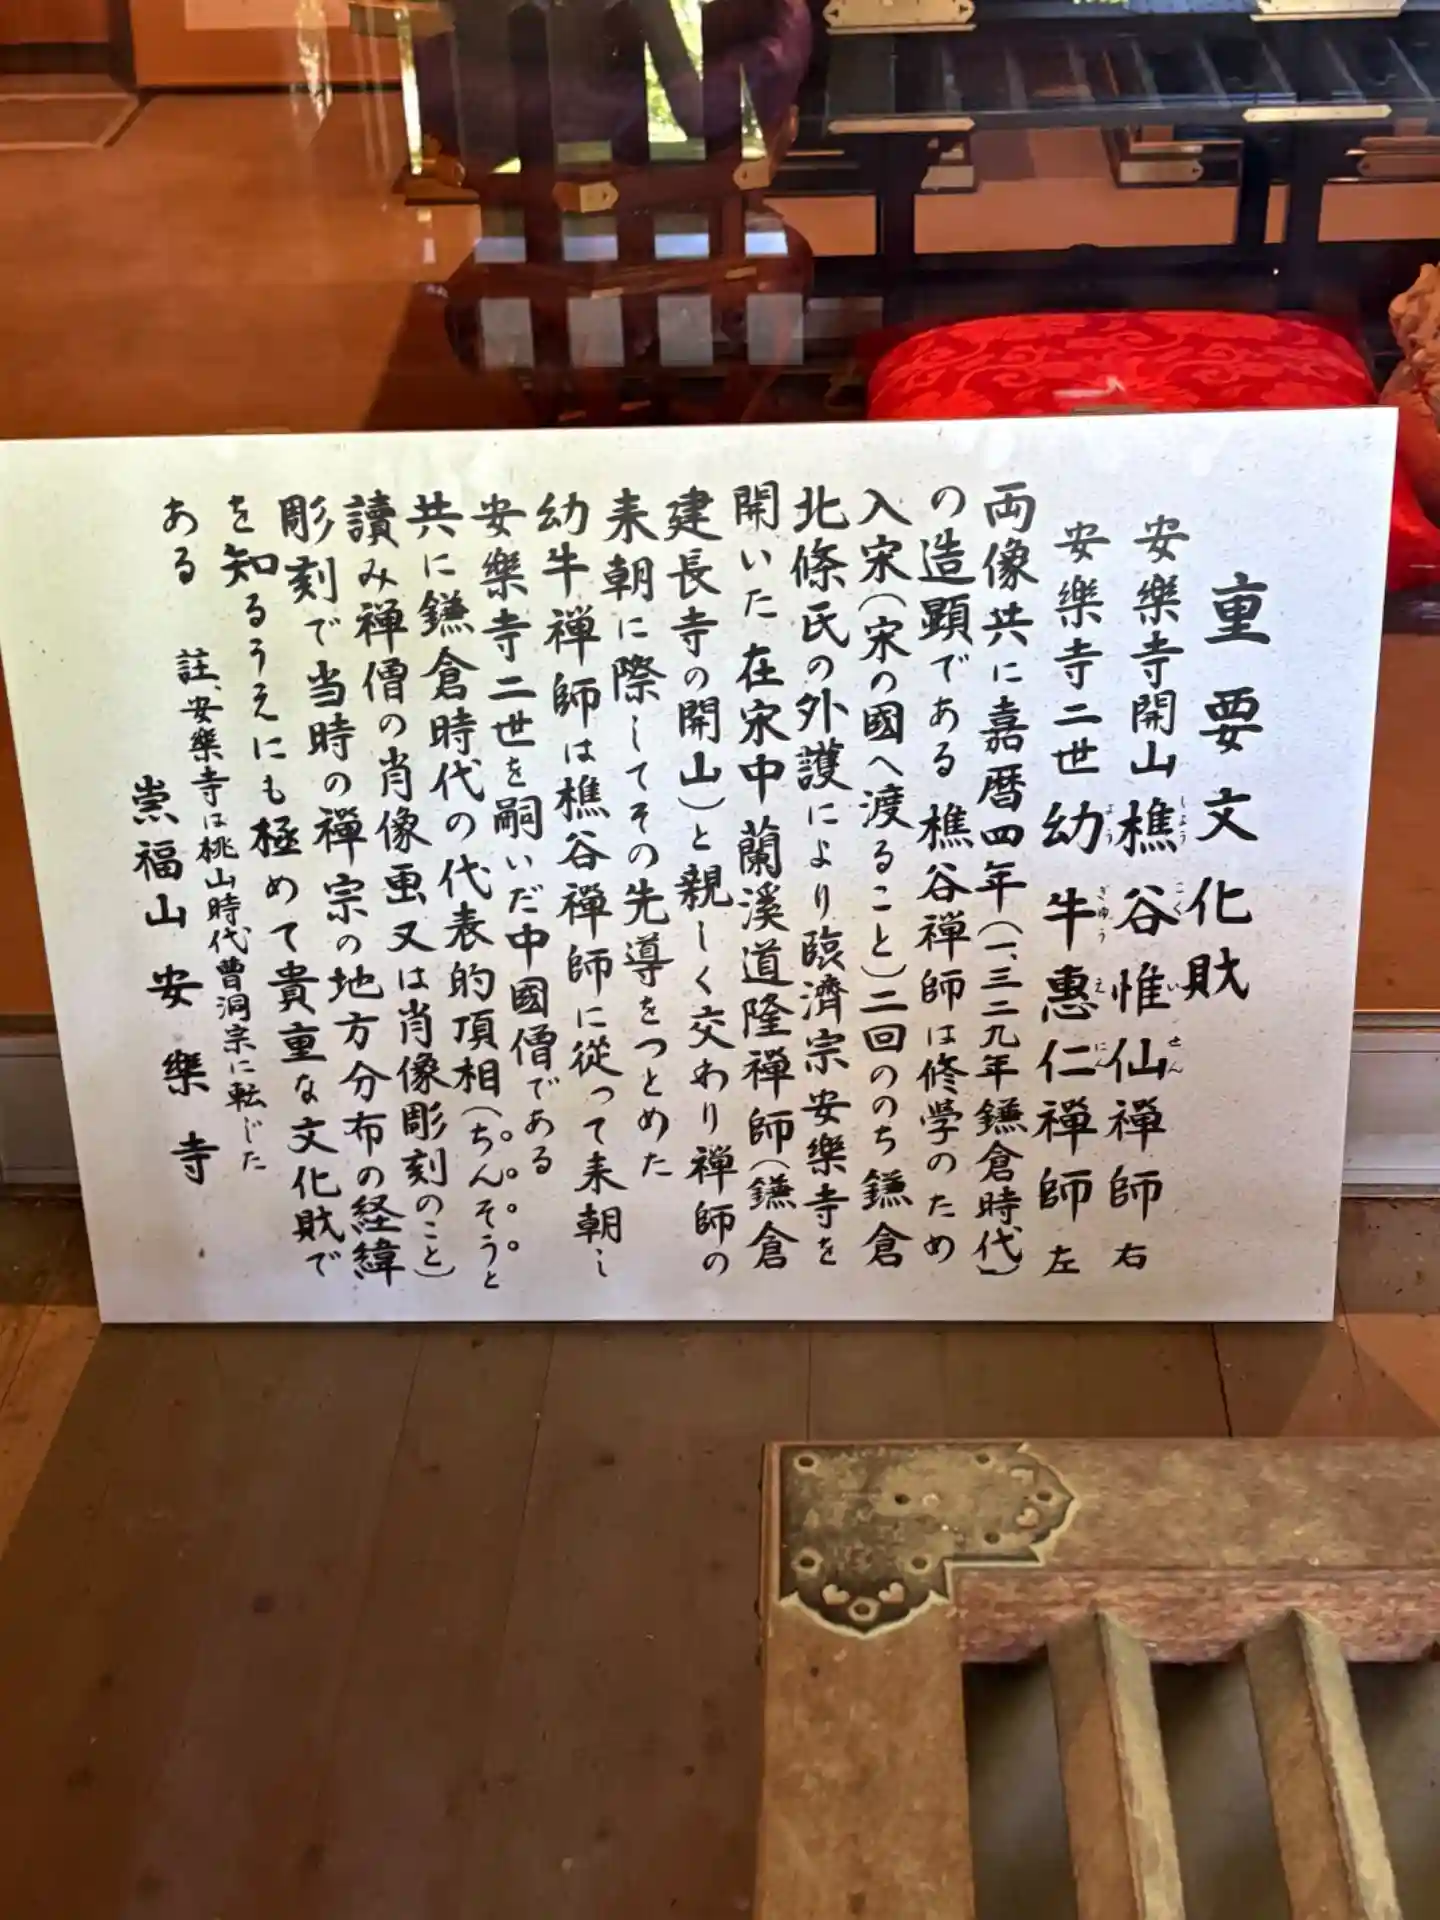 重要文化財
安樂寺開山樵谷惟仙禅師 右
しょうこくいせん
安樂寺二世幼牛惠仁禅師 左
ようぎゅうえにん
両像共に嘉暦四年(一、三二九年鎌倉時代)
の造顕である 樵谷禅師は修学のため
入宋(宋の國へ渡ること)二回ののち鎌倉
北條氏の外護により臨濟宗安樂寺を
開いた 在宋中蘭溪道隆禅師(鎌倉
建長寺の開山)と親しく交わり禅師の
来朝に際してその先導をつとめた
幼牛禅師は樵谷禅師に従って来朝し
安樂寺二世を嗣いだ中國僧である
共に鎌倉時代の代表的頂相(ちんそうと
讀み禅僧の肖像画又は肖像彫刻のこと)
彫刻で当時の禅宗の地方分布の経緯
を知るうえにも極めて貴重な文化財で
ある
註、安樂寺は桃山時代曹洞宗に転じた
崇福山 安樂寺